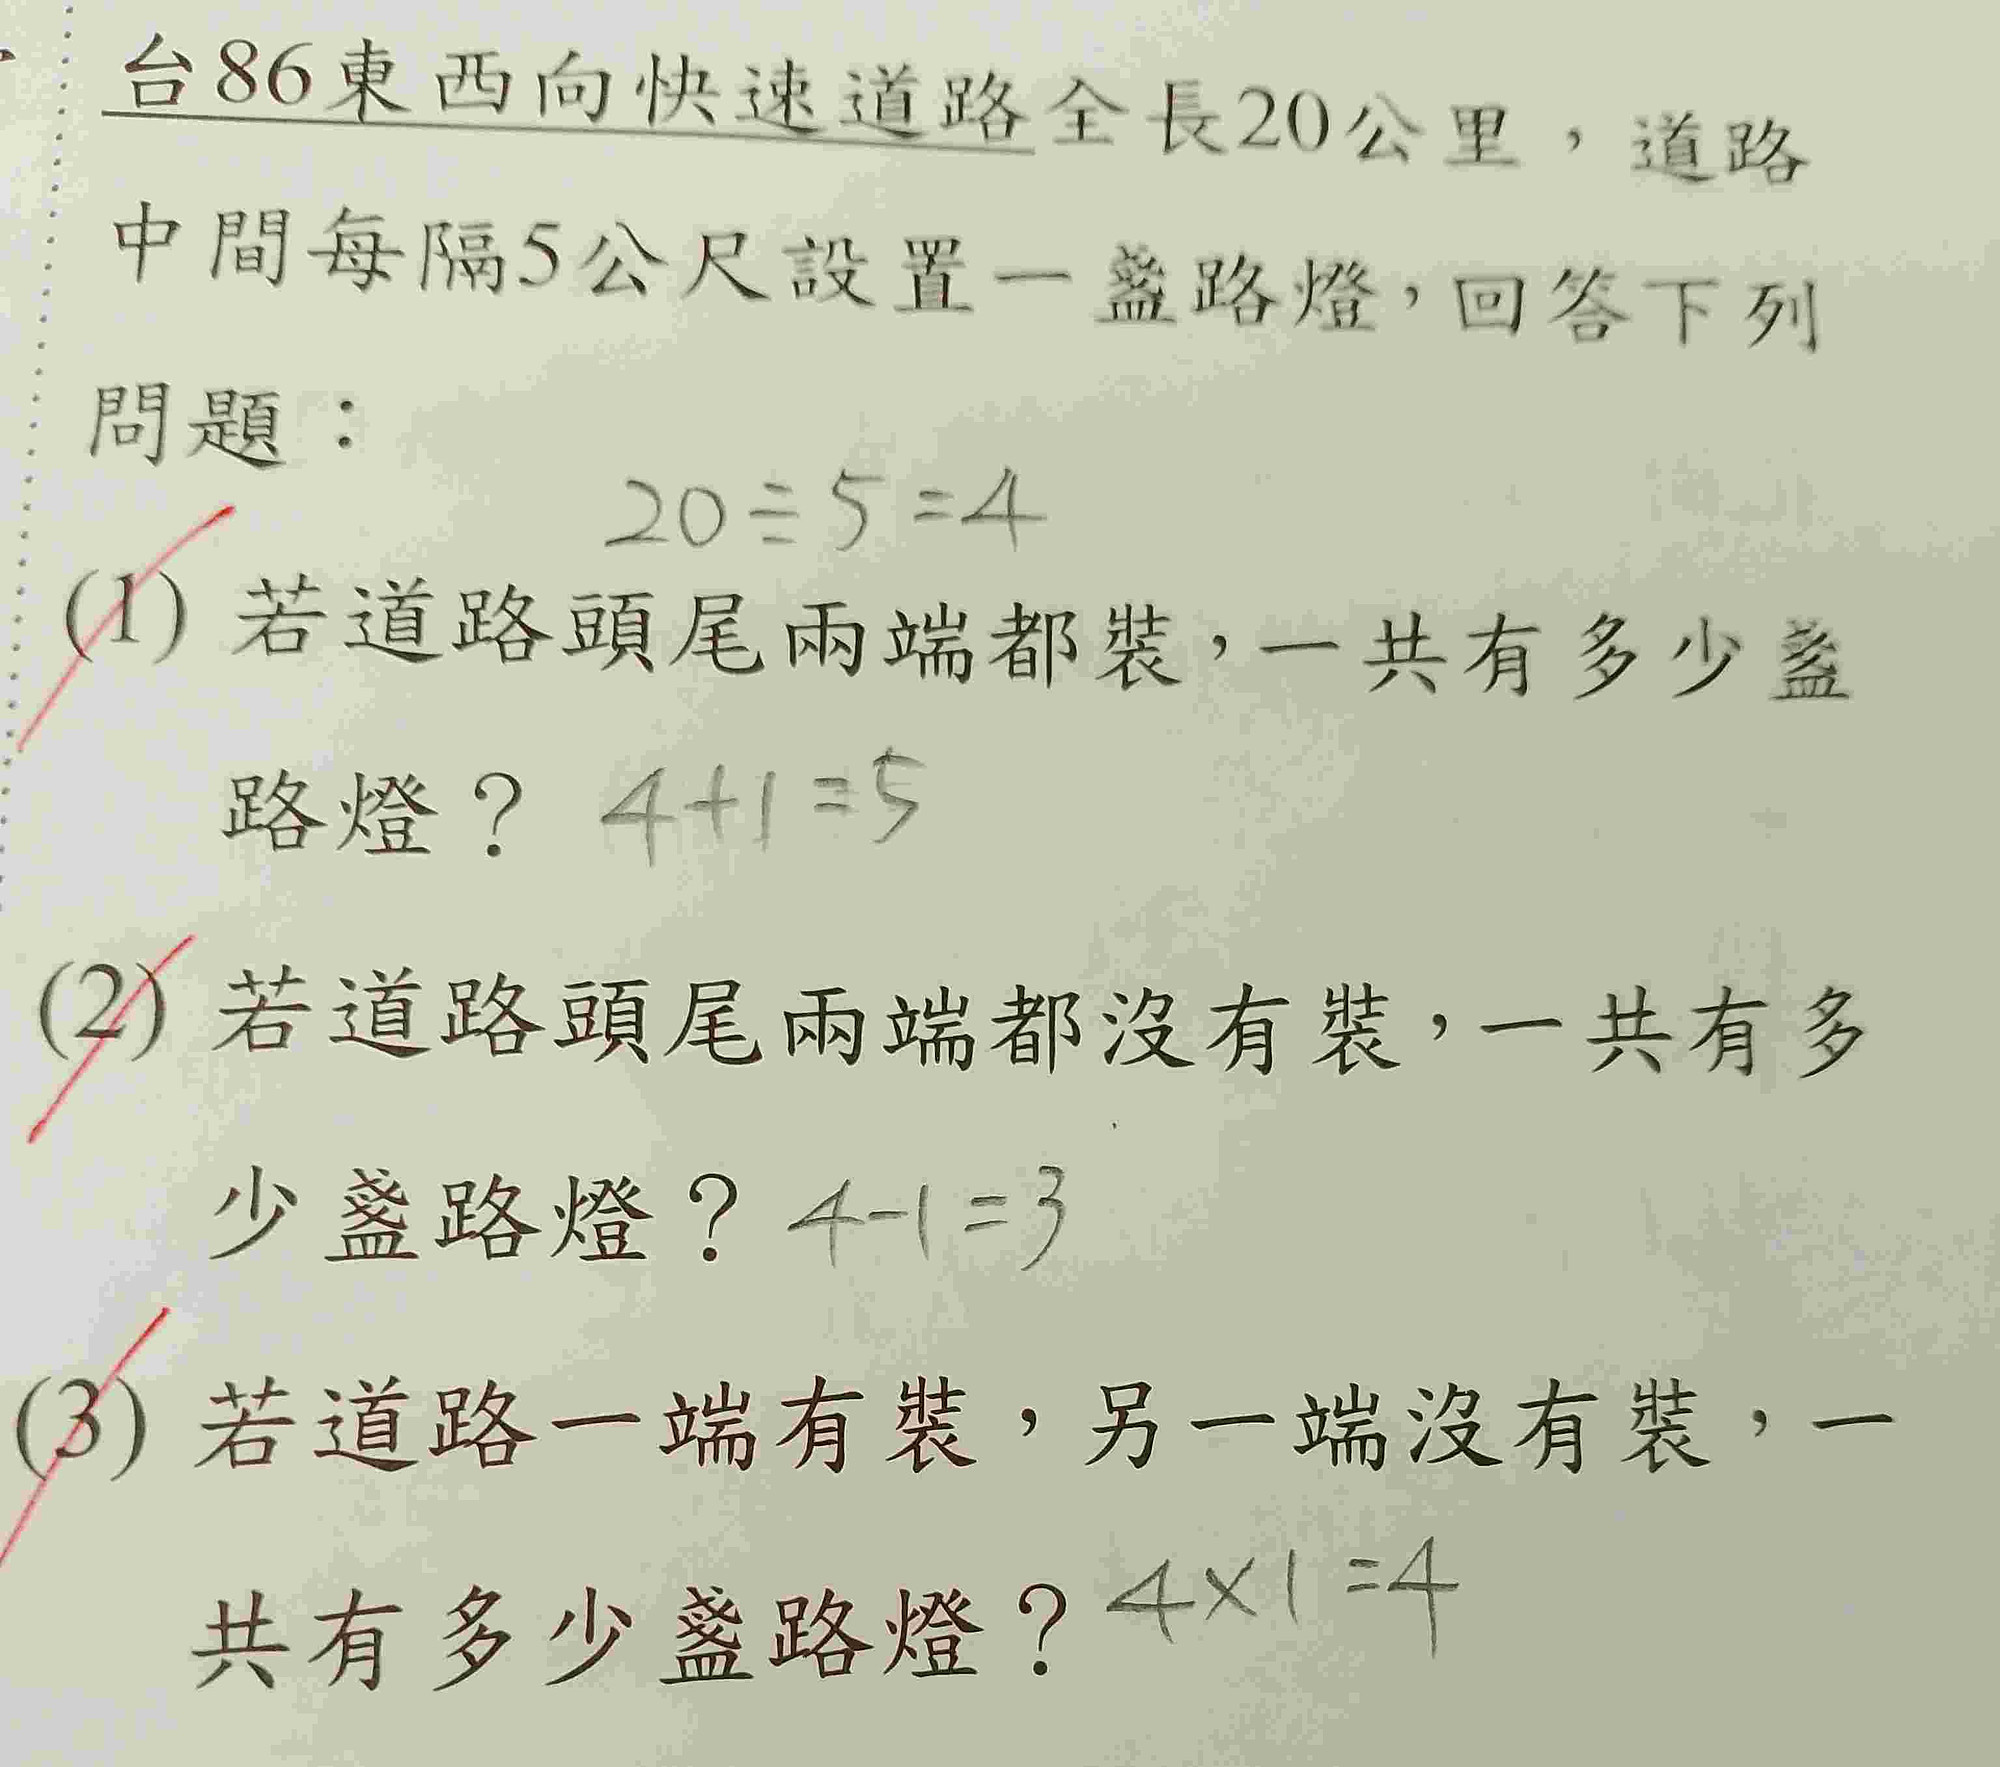 台86東西向快速道路全長20公里，道路
中間每隔5公尺設置一盞路燈，回答下列
問題：
20÷5=4
(1) 若道路頭尾兩端都裝，一共有多少盞
路燈？ 4+1=5
(2) 若道路頭尾兩端都沒有裝，一共有多
少盞路燈？ 4-1=3
(3) 若道路一端有裝，另一端沒有裝，一
共有多少盞路燈？ 4×1=4